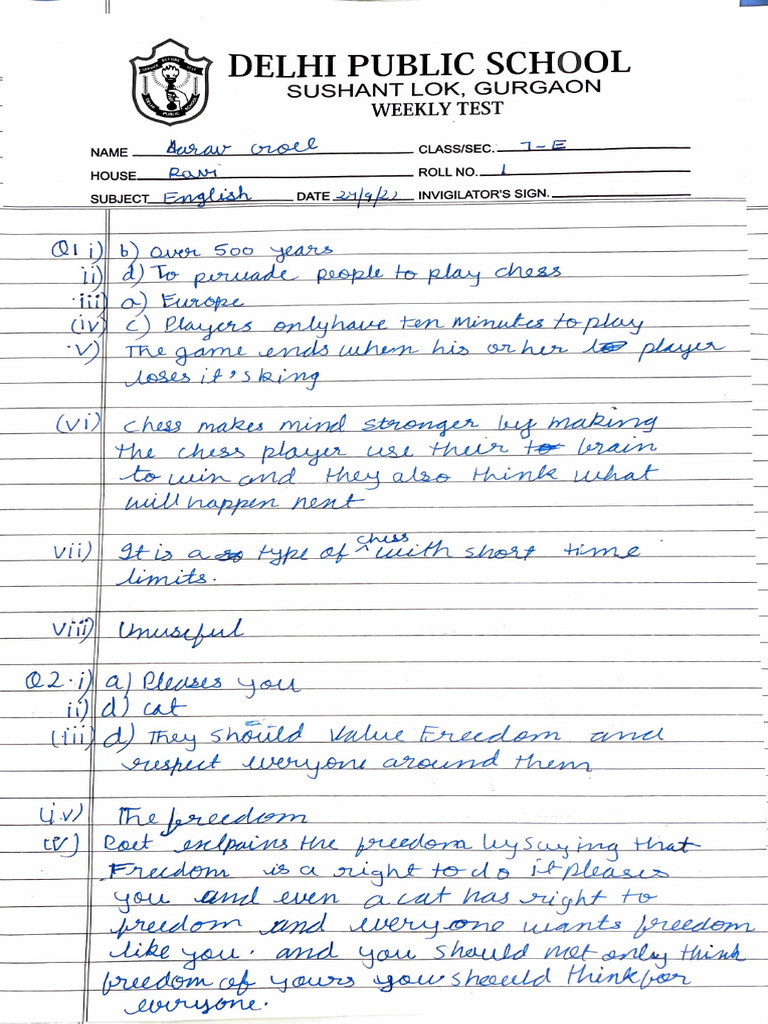 DELHI PUBLIC SCHOOL
SUSHANT LOK, GURGAON
WEEKLY TEST
NAME Aarav CLASS/SEC. 7-E
HOUSE Ravi ROLL NO. 1
SUBJECT English DATE INVIGILATOR'S SIGN.
Q1 i) b) over 500 years
ii) d) To peruade people to play chess
iii) a) Europe
(iv) c) Players only have ten minutes to play
v) The game ends when his or her player
loses it's king
(vi) chess makes mind stronger by making
the chess player use their brain
to win and they also think what
will happen next
vii) It is a type of chess with short time
limits.
viii) Unuseful
Q2. i) a) Pleases you
ii) d) cat
(iii) d) They should value Freedom and
respect everyone around them
(iv) The freedom
(v) Poet exlpains the freedom by saying that
Freedom is a right to do it pleases
you and even a cat has right to
freedom and everyone wants freedom
like you. and you should not only think
freedom of yours you should think for
everyone.